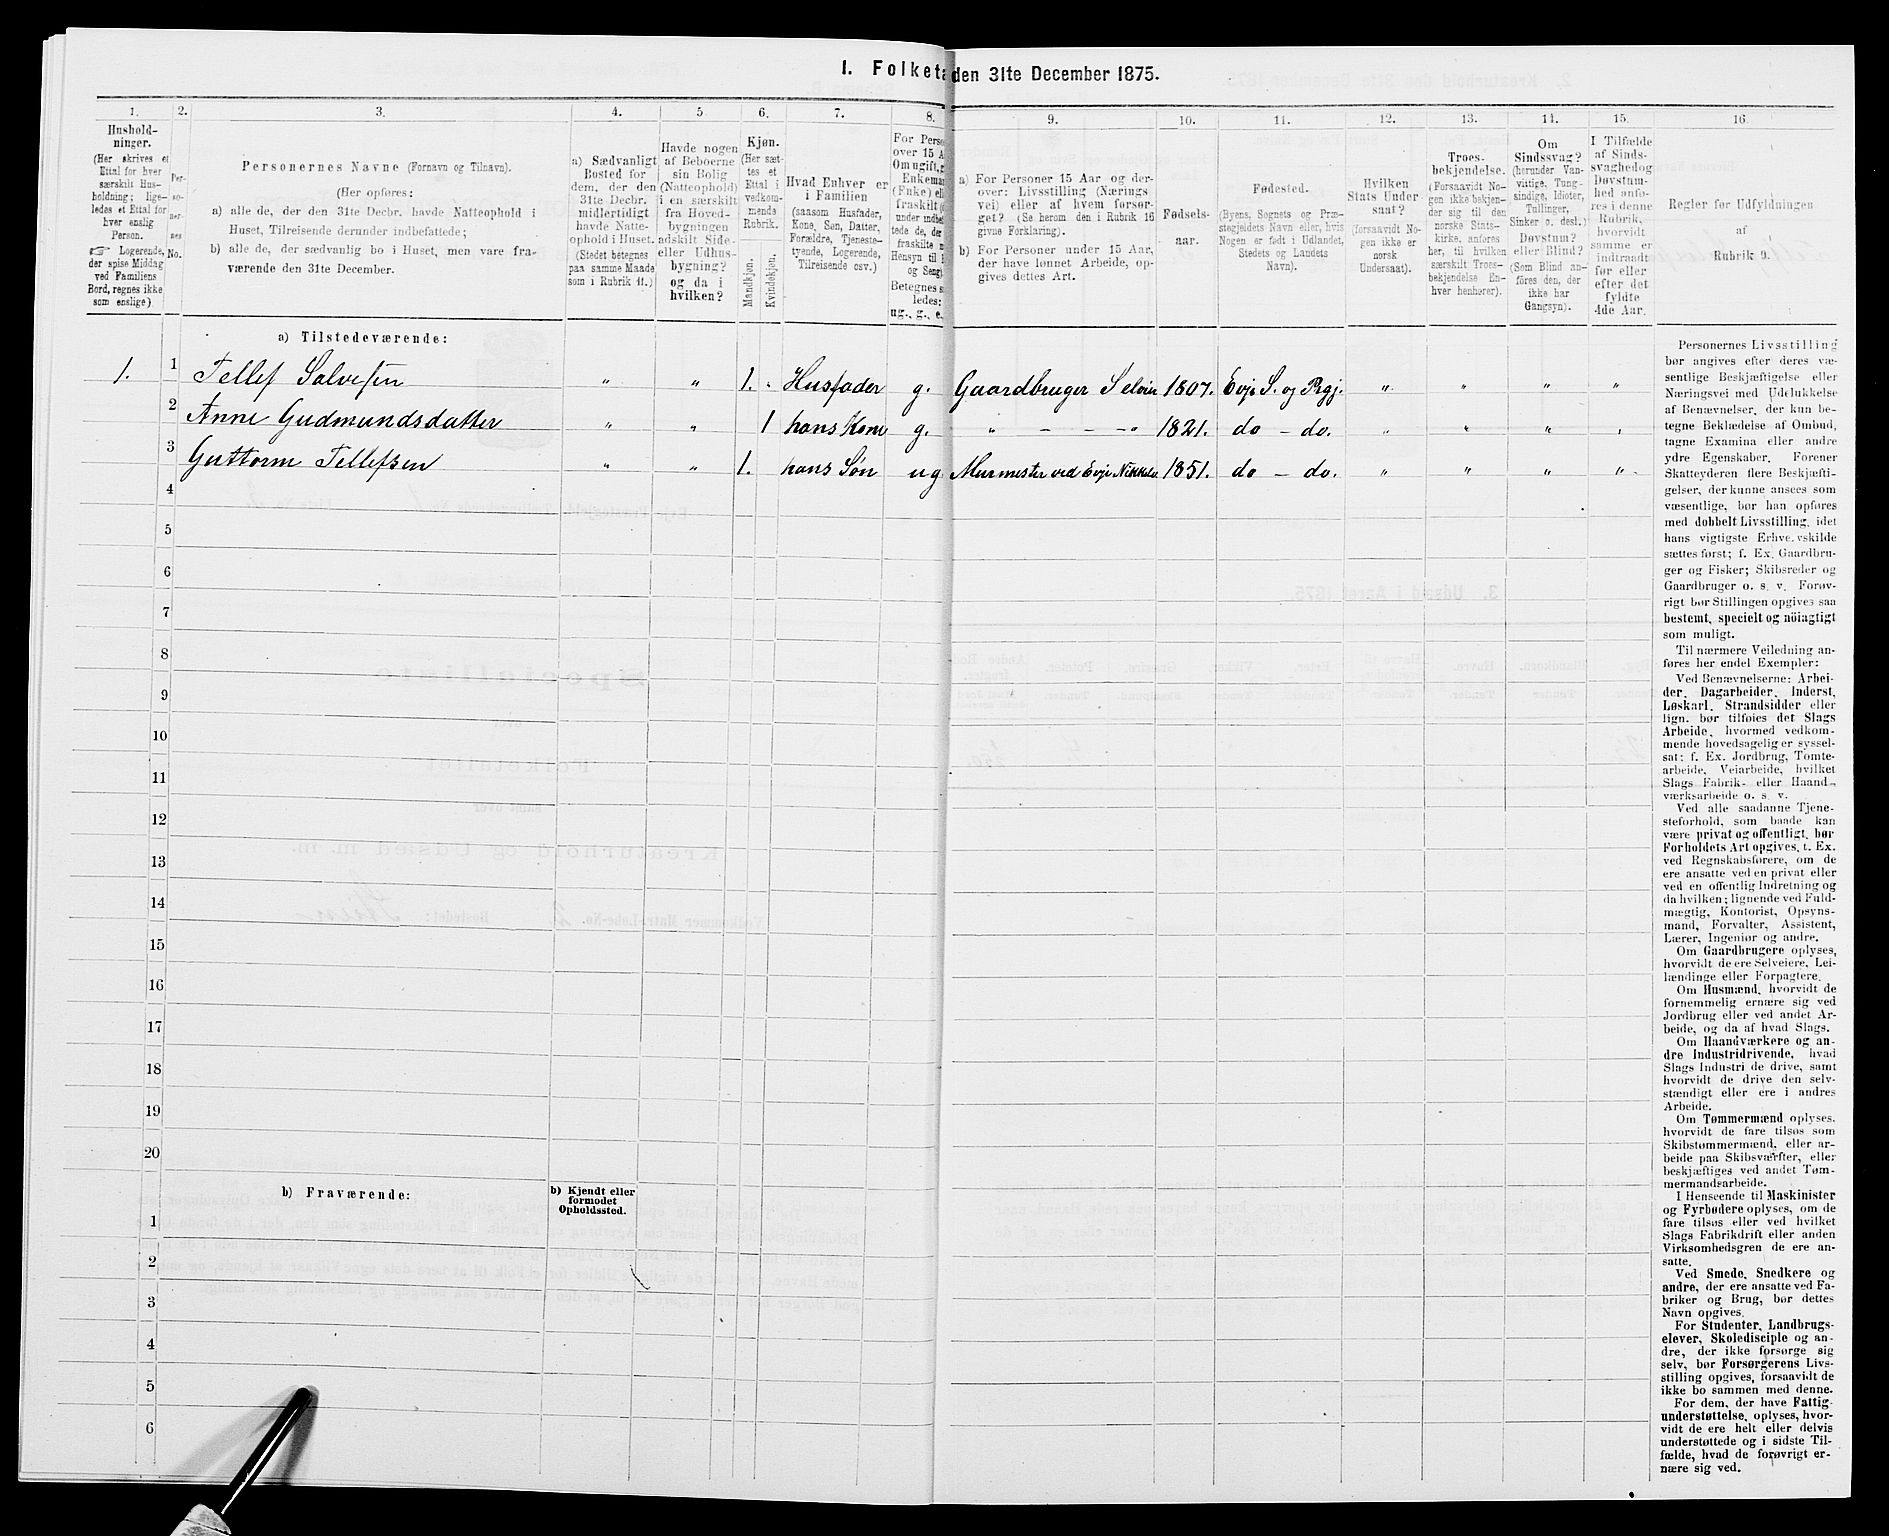 1. Folketa den 31te December 1875.
1. 2. 3. 4. 5 6. 7. 8. 9. 10. 11. 12. 13. 14. 15. 16.
Hushold-
ninger.
(Her skrives et
Ettal for hver
særskilt Hus-
holdning; lige-
ledes et Ettal for
hver enslig
Person.
Logerende,
der spise Middag
ved Familiens
Bord, regnes ikke
som enslige)
Per-
so-
ner-
nes
No.
Personernes Navne (Fornavn og Tilnavn).
(Her opføres:
a) alle de, der den 31te Decbr. havde Natteophold i
Huset, Tilreisende derunder indbefattede;
b) alle de, der sædvanlig bo i Huset, men vare fra-
værende den 31te December.
a) Sædvanligt
Bosted for
dem, der den
31te Decbr.
midlertidigt
havde Natte-
ophold i Huset.
(Stedet betegnes
paa samme Maade
som i Rubrik 11.)
Havde nogen
af Beboerne
sin Bolig
(Natteophold)
i en særskilt
fra Hoved-
bygningen
adskilt Side-
eller Udhus-
bygning?
og da i
hvilken?
Kjøn.
(Her sæt-
tes et
Ettal i
vedkom-
mende
Rubrik.
Mandkjøn.
Kvindekjøn.
Hvad Enhver er
i Familien
(saasom Husfader,
Kone, Søn, Datter,
Forældre, Tjeneste-
tyende, Logerende,
Tilreisende osv.)
For Perso
over 15 A
Om ugift, g
Enkema
(Enke) el
fraskilt
under indbe
tede de, der
fraskilte
Hensyn til
og Seng
Betegnes s
ledes:
ug., g., e.
a) For Personer 15 Aar og der-
over: Livsstilling (Nærings-
vei) eller af hvem forsør-
get? (Se herom den i Rubrik 16
givne Forklaring).
b) For Personer under 15 Aar,
der have lønnet Arbeide, op-
gives dettes Art.
Fødsels-
aar.
Fødested.
(Byens, Sognets og Præ-
stegjeldets Navn eller, hvis
Nogen er født i Udlandet,
Stedets og Landets
Navn).
Hvilken
Stats Under-
saat?
(forsaavidt No-
gen ikke er
norsk
Undersaat).
Troes-
bekjendelse.
(Forsaavidt No-
gen ikke bekjen-
der sig til den
norske Stats-
kirke, anføres
her, til hvilken
særskilt Troes-
bekjendelse En-
hver henhører).
Om
Sindssvag?
(herunder Van-
vittige, Tung-
sindige, Idioter,
Tullinger,
Sinker o. desl.)
Døvstum?
eller Blind?
(Som Blind an-
føres den, der
ikke har
Gangsyn).
I Tilfælde
af Sinds-
svaghed og
Døvstum-
hed anfø-
res i denne
Rubrik,
hvorvidt
samme er
indtraadt
før eller
efter det
fyldte
4de Aar.
Regler for Udfyldningen
af
Rubrik 9.
a) Tilstedeværende:
1. 1 Tellef Salvesen " " 1. Husfader g. Gaardbruger Selveier 1807. Evje S. og Prgj. " " " "
2 Anne Gudmundsdatter " " 1 hans Kone g. " - - - " 1821. do - do. " " "
3 Guttorm Tellefsen " " 1. hans Søn ug Murmester ved Evje 1851. do - do. " " " "
4
5
6
7
8
9
10
11
12
13
14
15
16
17
18
19
20
b) Fraværende:
b) Kjendt eller
formodet
Opholdssted.
1
2
3
4
5
6
Personernes Livsstilling
bør angives efter deres væ-
sentlige Beskjæftigelse eller
Næringsvei med Udelukkelse
af Benævnelser, der kun be-
tegne Beklædelse af Ombud,
tagne Examina eller andre
ydre Egenskaber. Forener
Skatteyderen flere Beskjæfti-
gelser, der kunne ansees som
væsentlige, bør han opføres
med dobbelt Livsstilling, idet
hans vigtigste Erhverv skilde
sættes først; f. Ex. Gaardbru-
ger og Fisker; Skibsreder og
Gaardbruger o. s. v. Forøv-
rigt bør Stillingen opgives saa
bestemt, specielt og nöiagtigt
som muligt.
Til nærmere Veiledning an-
føres her endel Exempler:
Ved Benævnelserne: Arbei-
der, Dagarbeider, Inderst,
Løskarl, Strandsidder eller
lign. bør tilføies det Slags
Arbeide, hvormed vedkom-
mende hovedsagelig er syssel-
sat; f. Ex. Jordbrug, Tomte-
arbeide, Veiarbeide, hvilket
Slags Fabrik- eller Haand-
værksarbeide o. s. v.
Ved alle saadanne Tjene-
steforhold, som baade kan
være privat og offentligt, bør
Forholdets Art opgives, t. Ex.
ved Regnskabsførere, om de
ere ansatte ved en privat eller
ved en offentlig Indretning og
da hvilken; lignende ved Fuld-
mægtig, Kontorist, Opsyns-
mand, Forvalter, Assistent,
Lærer, Ingeniør og andre.
Om Gaardbrugere oplyses,
hvorvidt de ere Selveiere, Lei-
lændinge eller Forpagtere.
Om Husmænd, hvorvidt de
fornemmelig ernære sig ved
Jordbrug eller ved andet Ar-
beide, og da af hvad Slags.
Om Haandværkere og an-
dre Industridrivende, hvad
Slags Industri de drive, samt
hvorvidt de drive den selv-
stændigt eller ere i andres
Arbeide.
Om Tømmermænd oplyses,
hvorvidt de fare tilsøs som
Skibstømmermænd, eller ar-
beide paa Skibsværfter, eller
beskjæftiges ved andet Tøm-
mermandsarbeide.
I Henseende til Maskinister
og Fyrbødere oplyses, om de
fare tilsøs eller ved hvilket
Slags Fabrikdrift eller anden
Virksomhedsgren de ere an-
satte.
Ved Smede, Snedkere og
andre, der ere ansatte ved Fa-
briker og Brug, bør dettes
Navn opgives.
For Studenter, Landbrugs-
elever, Skoledisciple og an-
dre, der ikke forsørge sig
selv, bør Forsørgerens Livs-
stilling opgives, forsaavidt de
ikke bo sammen med denne.
For dem, der have Fattig-
understøttelse, oplyses, hvor-
vidt de ere helt eller delvis
understøttede og i sidste Til-
fælde, hvad de forøvrigt er-
nære sig ved.